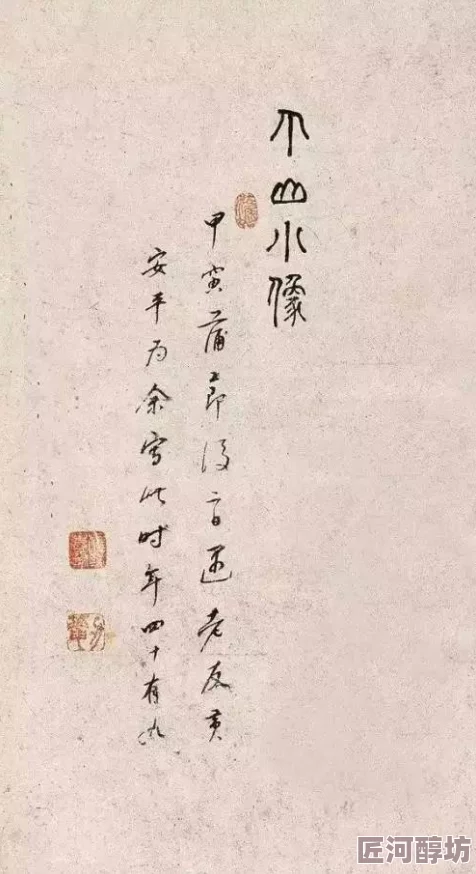 个山小像
甲寅蒲节后二日遇老友黄
安平为余写此时年四十有九
匠河醇坊